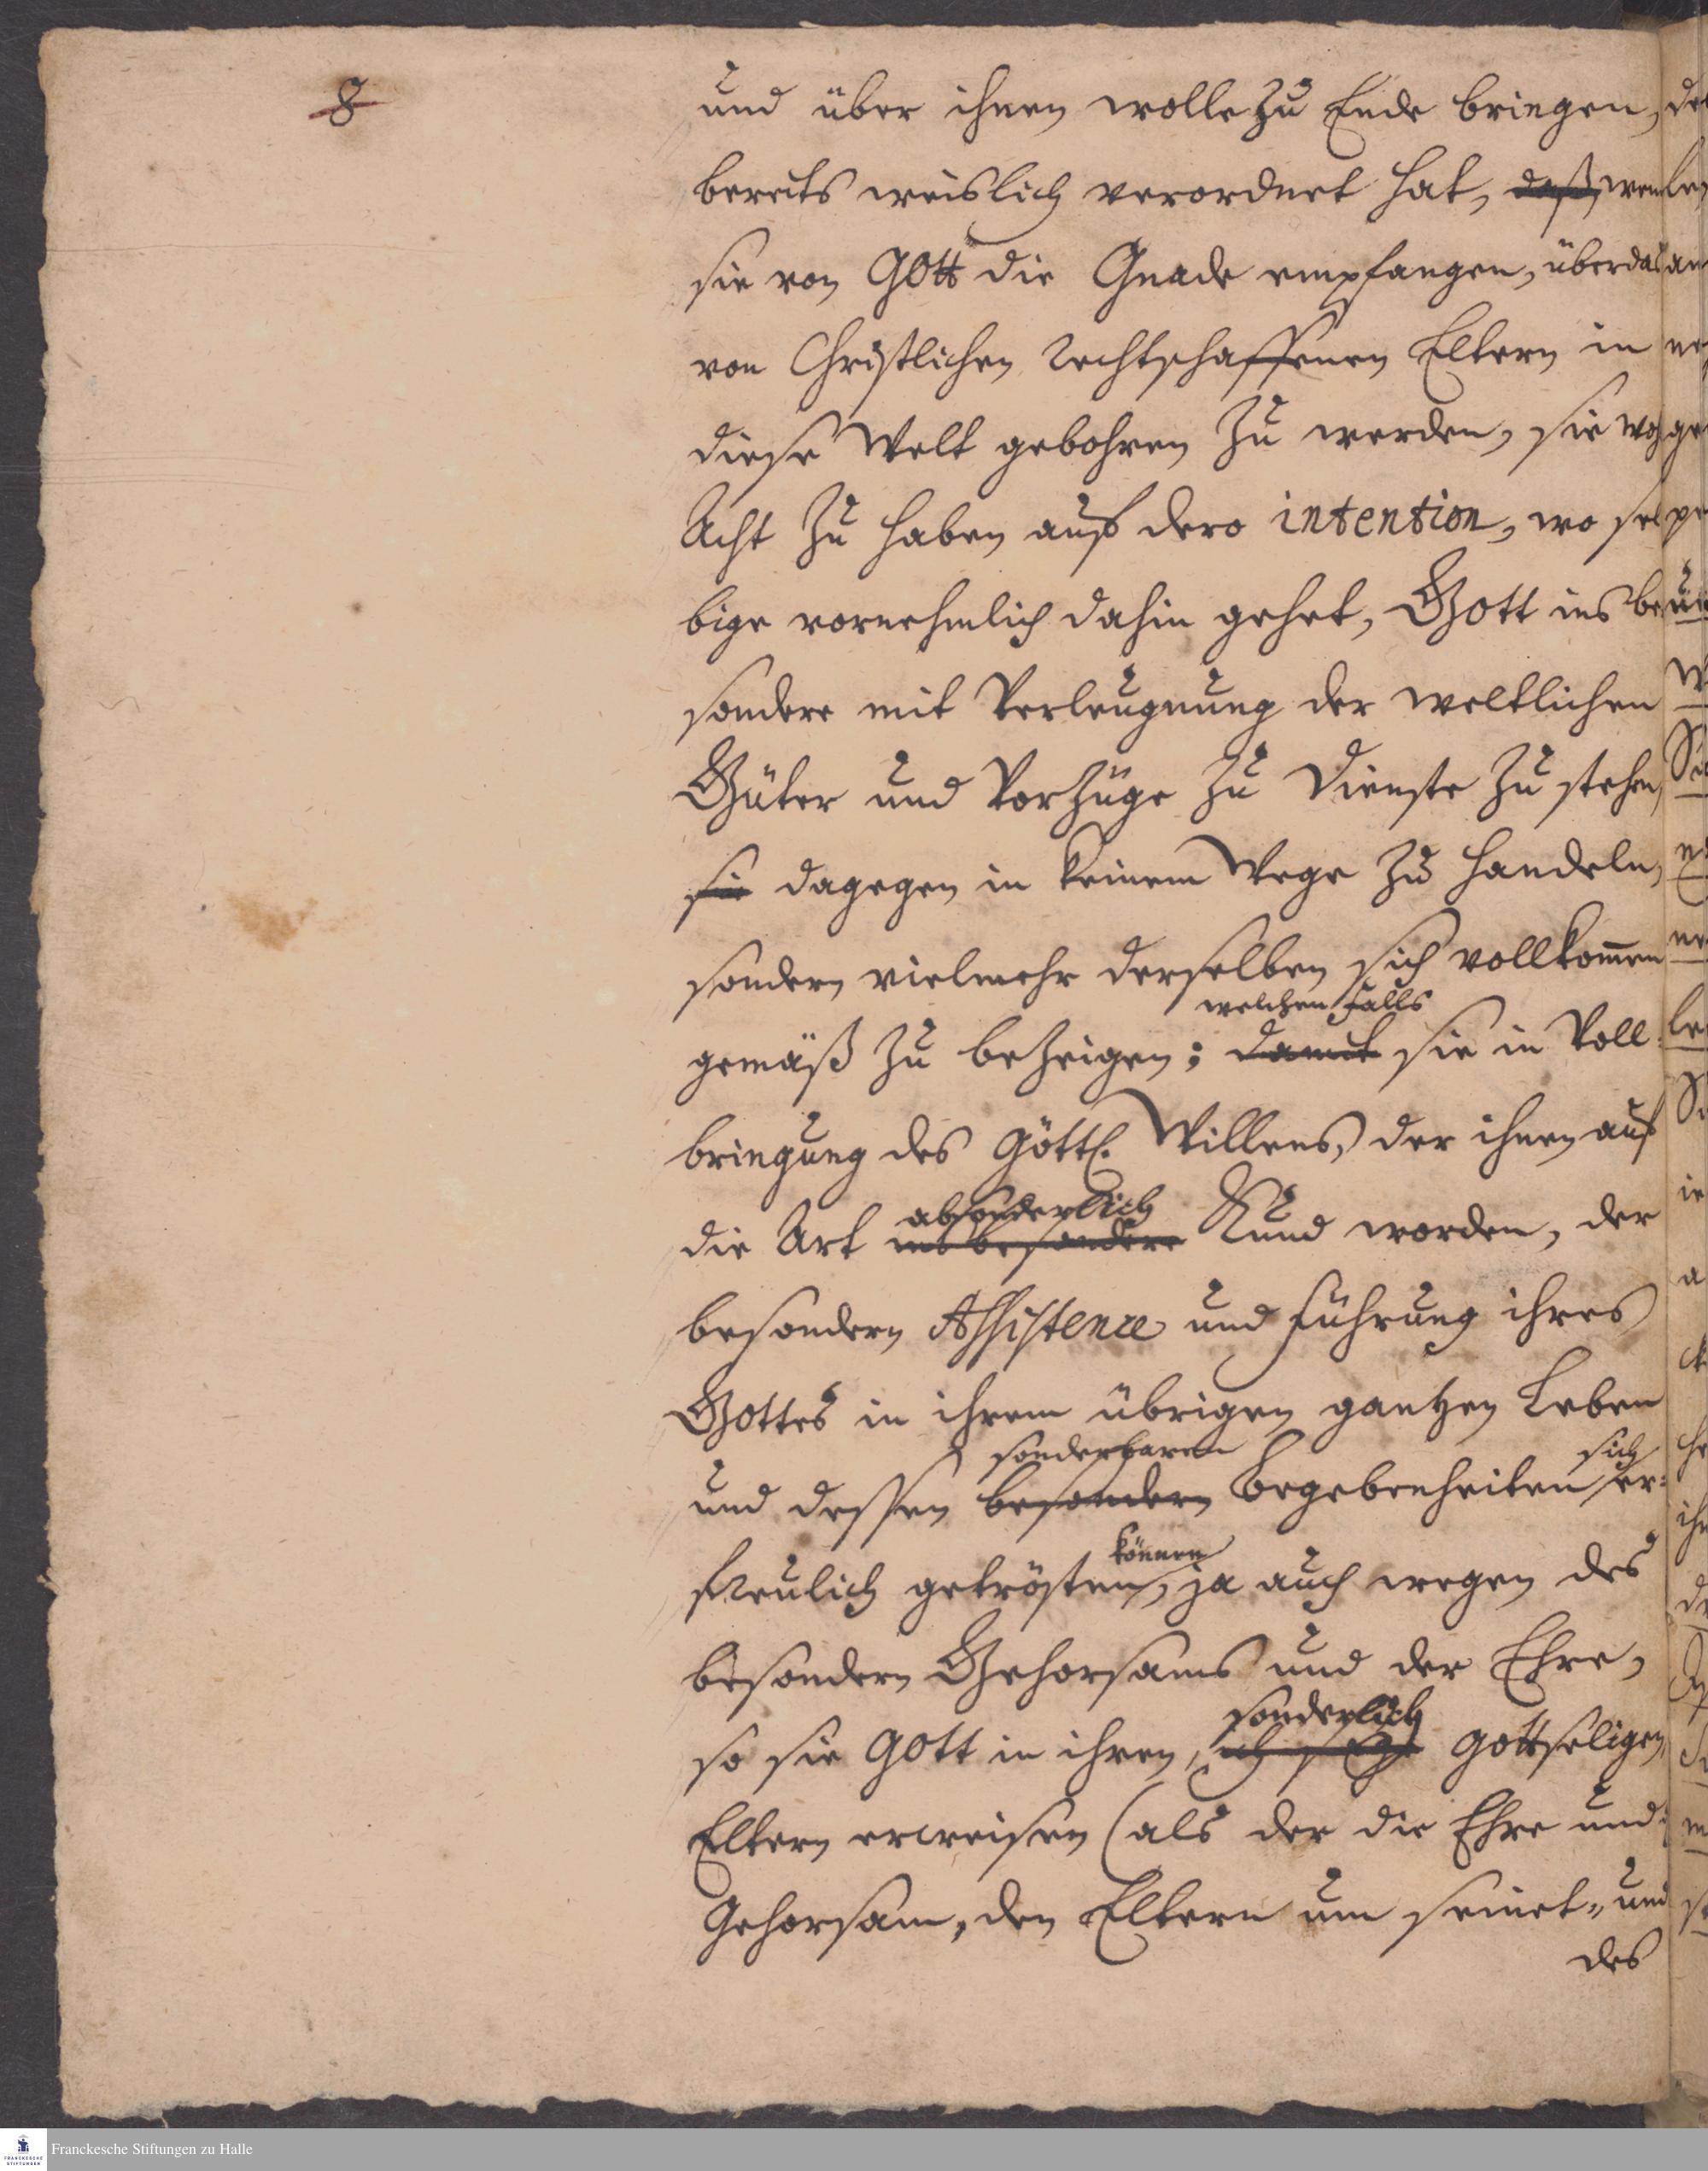 8
und über ihnen wolle zu Ende bringen,
bereits weislich verordnet hat, daß, wen
sie von GOtt die Gnade empfangen, überdas
von Christlichen Rechtschaffenen Eltern in
diese Welt gebohren zu werden, sie wohl
Acht zu haben auf dero intention, wo sel
bige vornehmlich dahin gehet, Gott ins be
sondere mit Verleugnung der weltlichen
Güter und Vorzüge zu Dienste zu stehen,
sie dagegen in keinem Wege zu handeln,
sondern vielmehr derselben sich vollkom̄en
welchen Falls
gemäß zu bezeigen; damit sie in Voll
bringung des Göttl. Willens, der ihnen auf
absonderlich
die Art ins besondere Kund worden, der
besondern Assistence und Führung ihres
Gottes in ihrem übrigen gantzen Leben
sonderbaren sich
und dessen besondern Begebenheiten er:
können
freulich getrösten, ja auch wegen des
besondern Gehorsams und der Ehre,
sonderlich
so sie GOtt in ihren, gottseligen,
Eltern erweisen (als der die Ehre und
Gehorsam, den Eltern um seinet„ und
des
Franckesche Stiftungen zu Halle